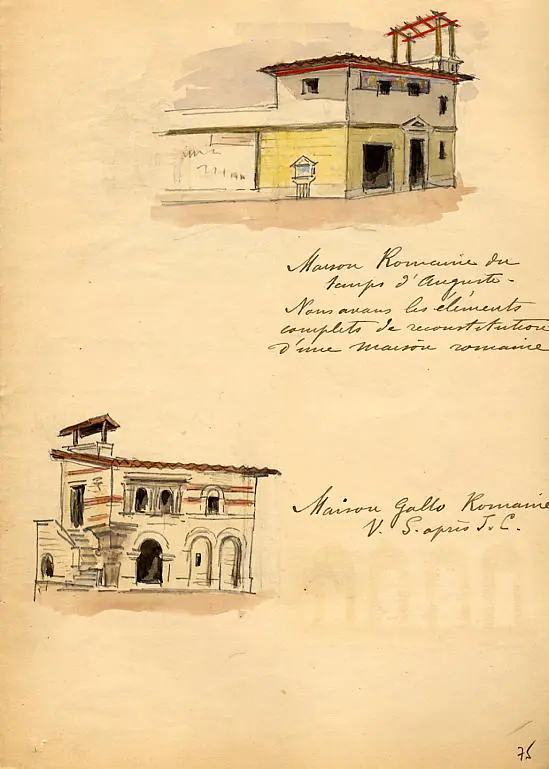 Maison Romaine du
temps d'Auguste -
Nous avons les éléments
complets de reconstitution
d'une maison romaine
Maison Gallo Romaine
V. S. après J. C.
75